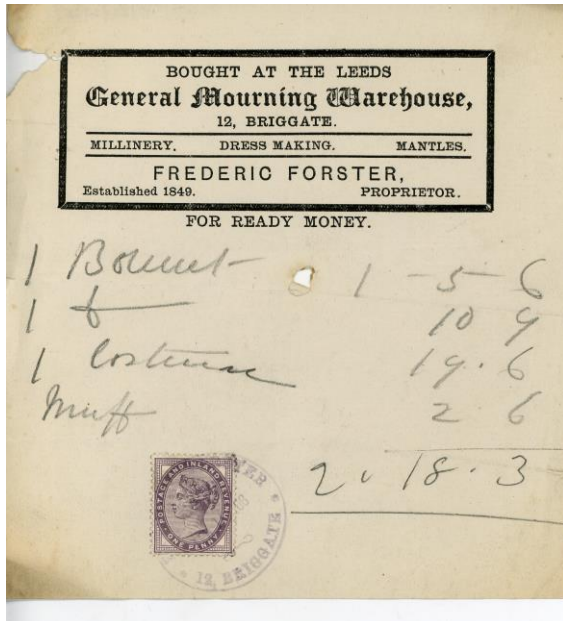 BOUGHT AT THE LEEDS
General Mourning Warehouse,
12, BRIGGATE.
MILLINERY. DRESS MAKING. MANTLES.
FREDERIC FORSTER,
Established 1849. PROPRIETOR.
FOR READY MONEY.
1 Bonnet 1 - 5 - 6
1 10 9
1 Costume 19 . 6
Muff 2 6
2 . 18 . 3
POSTAGE AND INLAND REVENUE
ONE PENNY
12, BRIGGATE